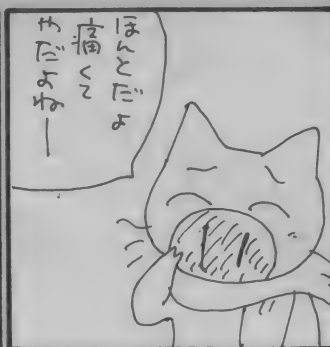 ほんとだよ
痛くて
やだよねー